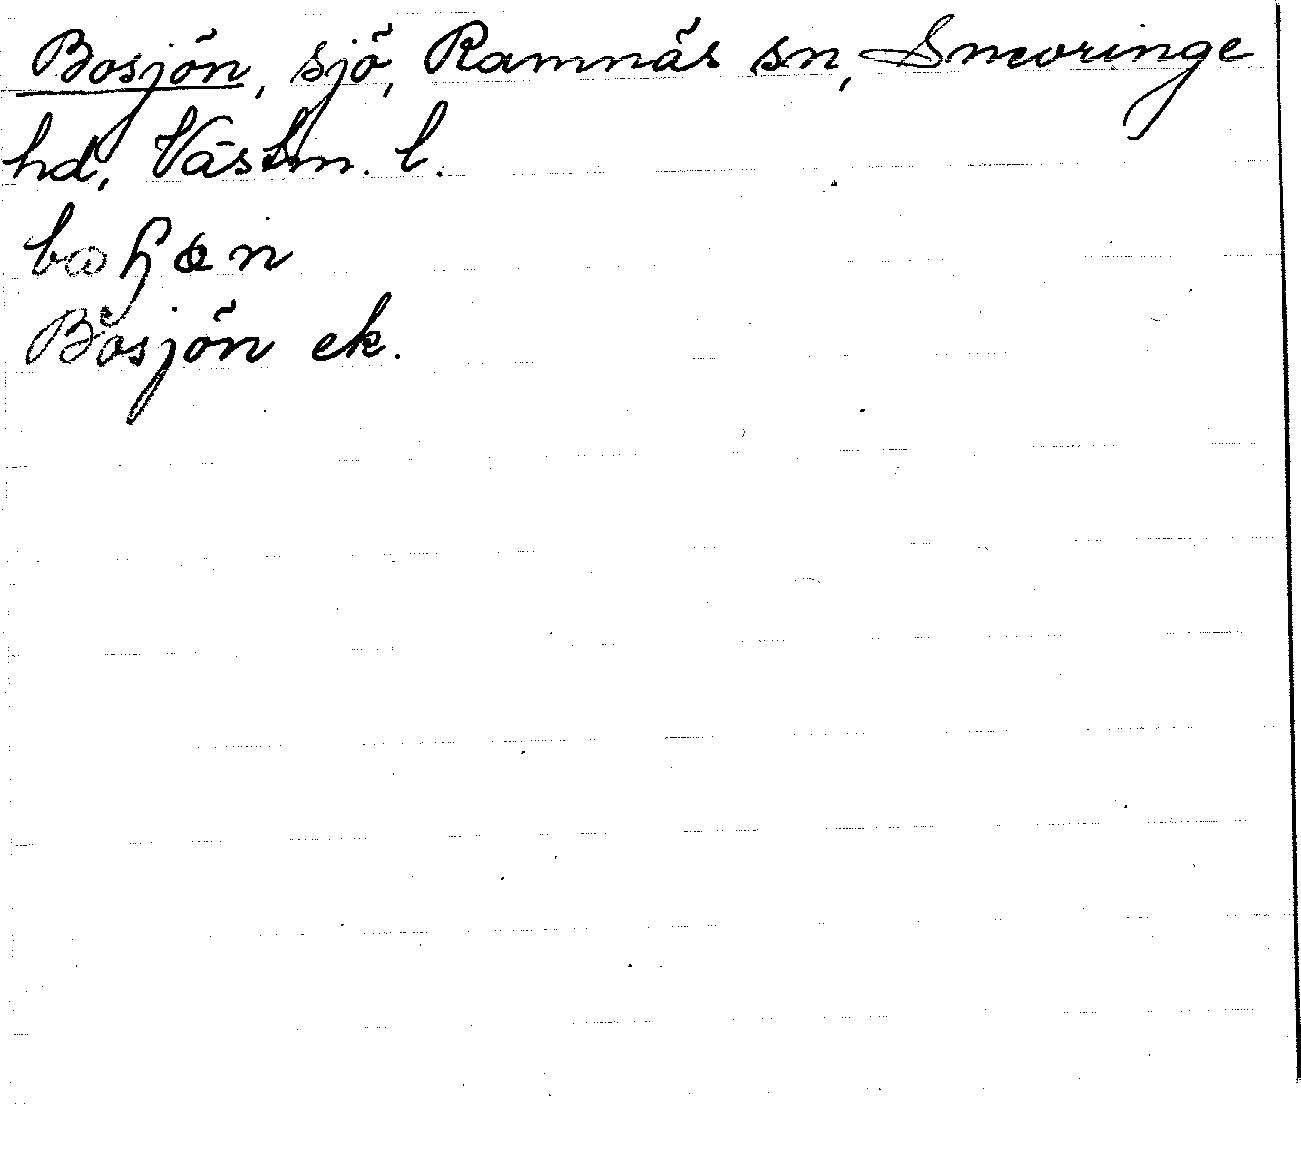 Bosjön, sjö, Ramnäs sn, Snevringe
hd, Västm. l.
Bosjön ek.